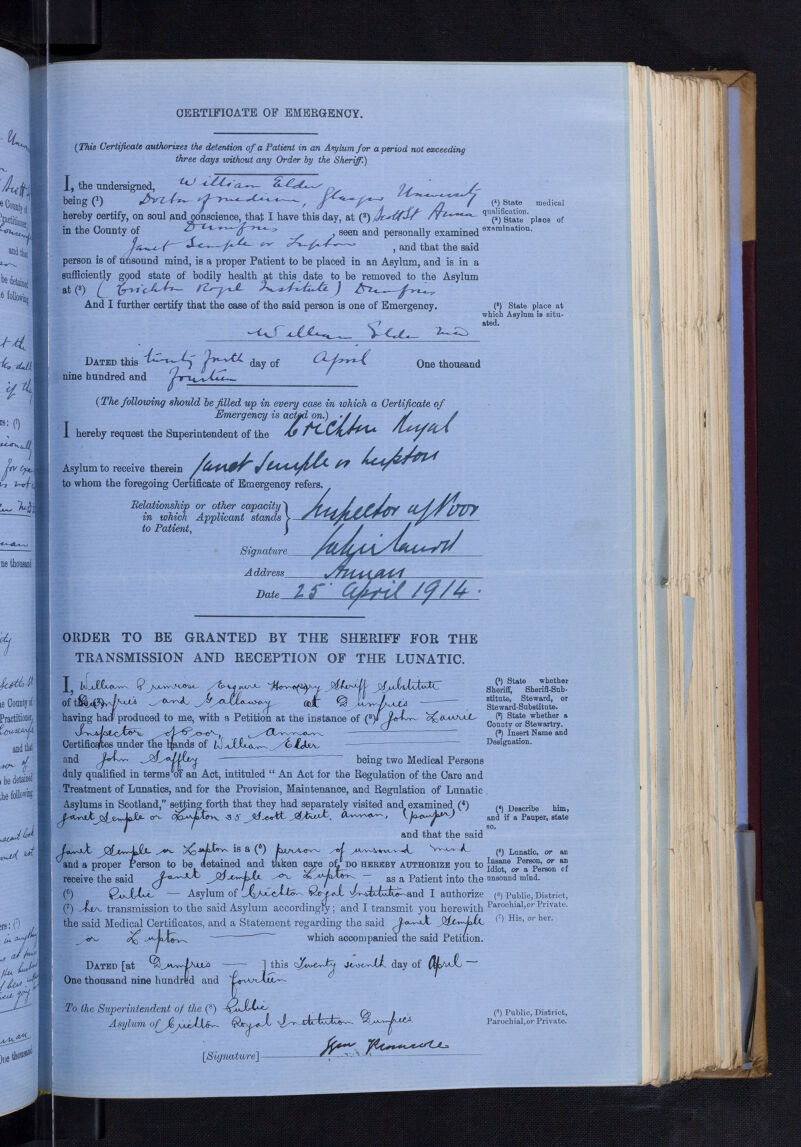 CERTIFICATE OF EMERGENCY.
(This Certificate authorizes the detention of a Patient in an Asylum for a period not exceeding
three days without any Order by the Sheriff.)
I, the undersigned, William Elder
being (¹) Doctor of medicine, Glasgow University
hereby certify, on soul and conscience, that I have this day, at (²) Scott St Annan
in the County of Dumfries , seen and personally examined
Janet Semple or Lupton , and that the said
person is of unsound mind, is a proper Patient to be placed in an Asylum, and is in a
sufficiently good state of bodily health at this date to be removed to the Asylum
at (³) (Crichton Royal Institute) Dumfries
And I further certify that the case of the said person is one of Emergency.
William Elder MD
DATED this twenty fourth day of April One thousand
nine hundred and fourteen
(¹) State medical
qualification.
(²) State place of
examination.
(³) State place at
which Asylum is situ-
ated.
(The following should be filled up in every case in which a Certificate of
Emergency is acted on.)
I hereby request the Superintendent of the Crichton Royal
Asylum to receive therein Janet Semple or Lupton
to whom the foregoing Certificate of Emergency refers.
Relationship or other capacity
in which Applicant stands
to Patient, Inspector of Poor
Signature
Address Annan
Date 25 April 1914.
ORDER TO BE GRANTED BY THE SHERIFF FOR THE
TRANSMISSION AND RECEPTION OF THE LUNATIC.
I, William Primrose Esquire Honorary Sheriff Substitute
of Dumfries and Galloway at Dumfries
having had produced to me, with a Petition at the instance of (³) John Laurie
Inspector of Poor, Annan
Certificates under the hands of William Elder
and John Saffley being two Medical Persons
duly qualified in terms of an Act, intituled “ An Act for the Regulation of the Care and
Treatment of Lunatics, and for the Provision, Maintenance, and Regulation of Lunatic
Asylums in Scotland,” setting forth that they had separately visited and examined (⁴)
Janet Semple or Lupton 35 Scott Street, Annan, (pauper)
and that the said
Janet Semple or Lupton is a (⁵) person of unsound mind
and a proper Person to be detained and taken care of, DO HEREBY AUTHORIZE you to
receive the said Janet Semple or Lupton — as a Patient into the
(⁶) Public — Asylum of Crichton Royal Institution and I authorize
(⁷) her transmission to the said Asylum accordingly; and I transmit you herewith
the said Medical Certificates, and a Statement regarding the said Janet Semple
or Lupton which accompanied the said Petition.
DATED [at Dumfries — ] this Twenty seventh day of April —
One thousand nine hundred and fourteen
To the Superintendent of the (⁸) Public
Asylum of Crichton Royal Institution Dumfries
[Signature] Wm Primrose
(¹) State whether
Sheriff, Sheriff-Sub-
stitute, Steward, or
Steward-Substitute.
(²) State whether a
County or Stewartry.
(³) Insert Name and
Designation.
(⁴) Describe him,
and if a Pauper, state
so.
(⁵) Lunatic, or an
Insane Person, or an
Idiot, or a Person of
unsound mind.
(⁶) Public, District,
Parochial, or Private.
(⁷) His, or her.
(⁸) Public, District,
Parochial, or Private.